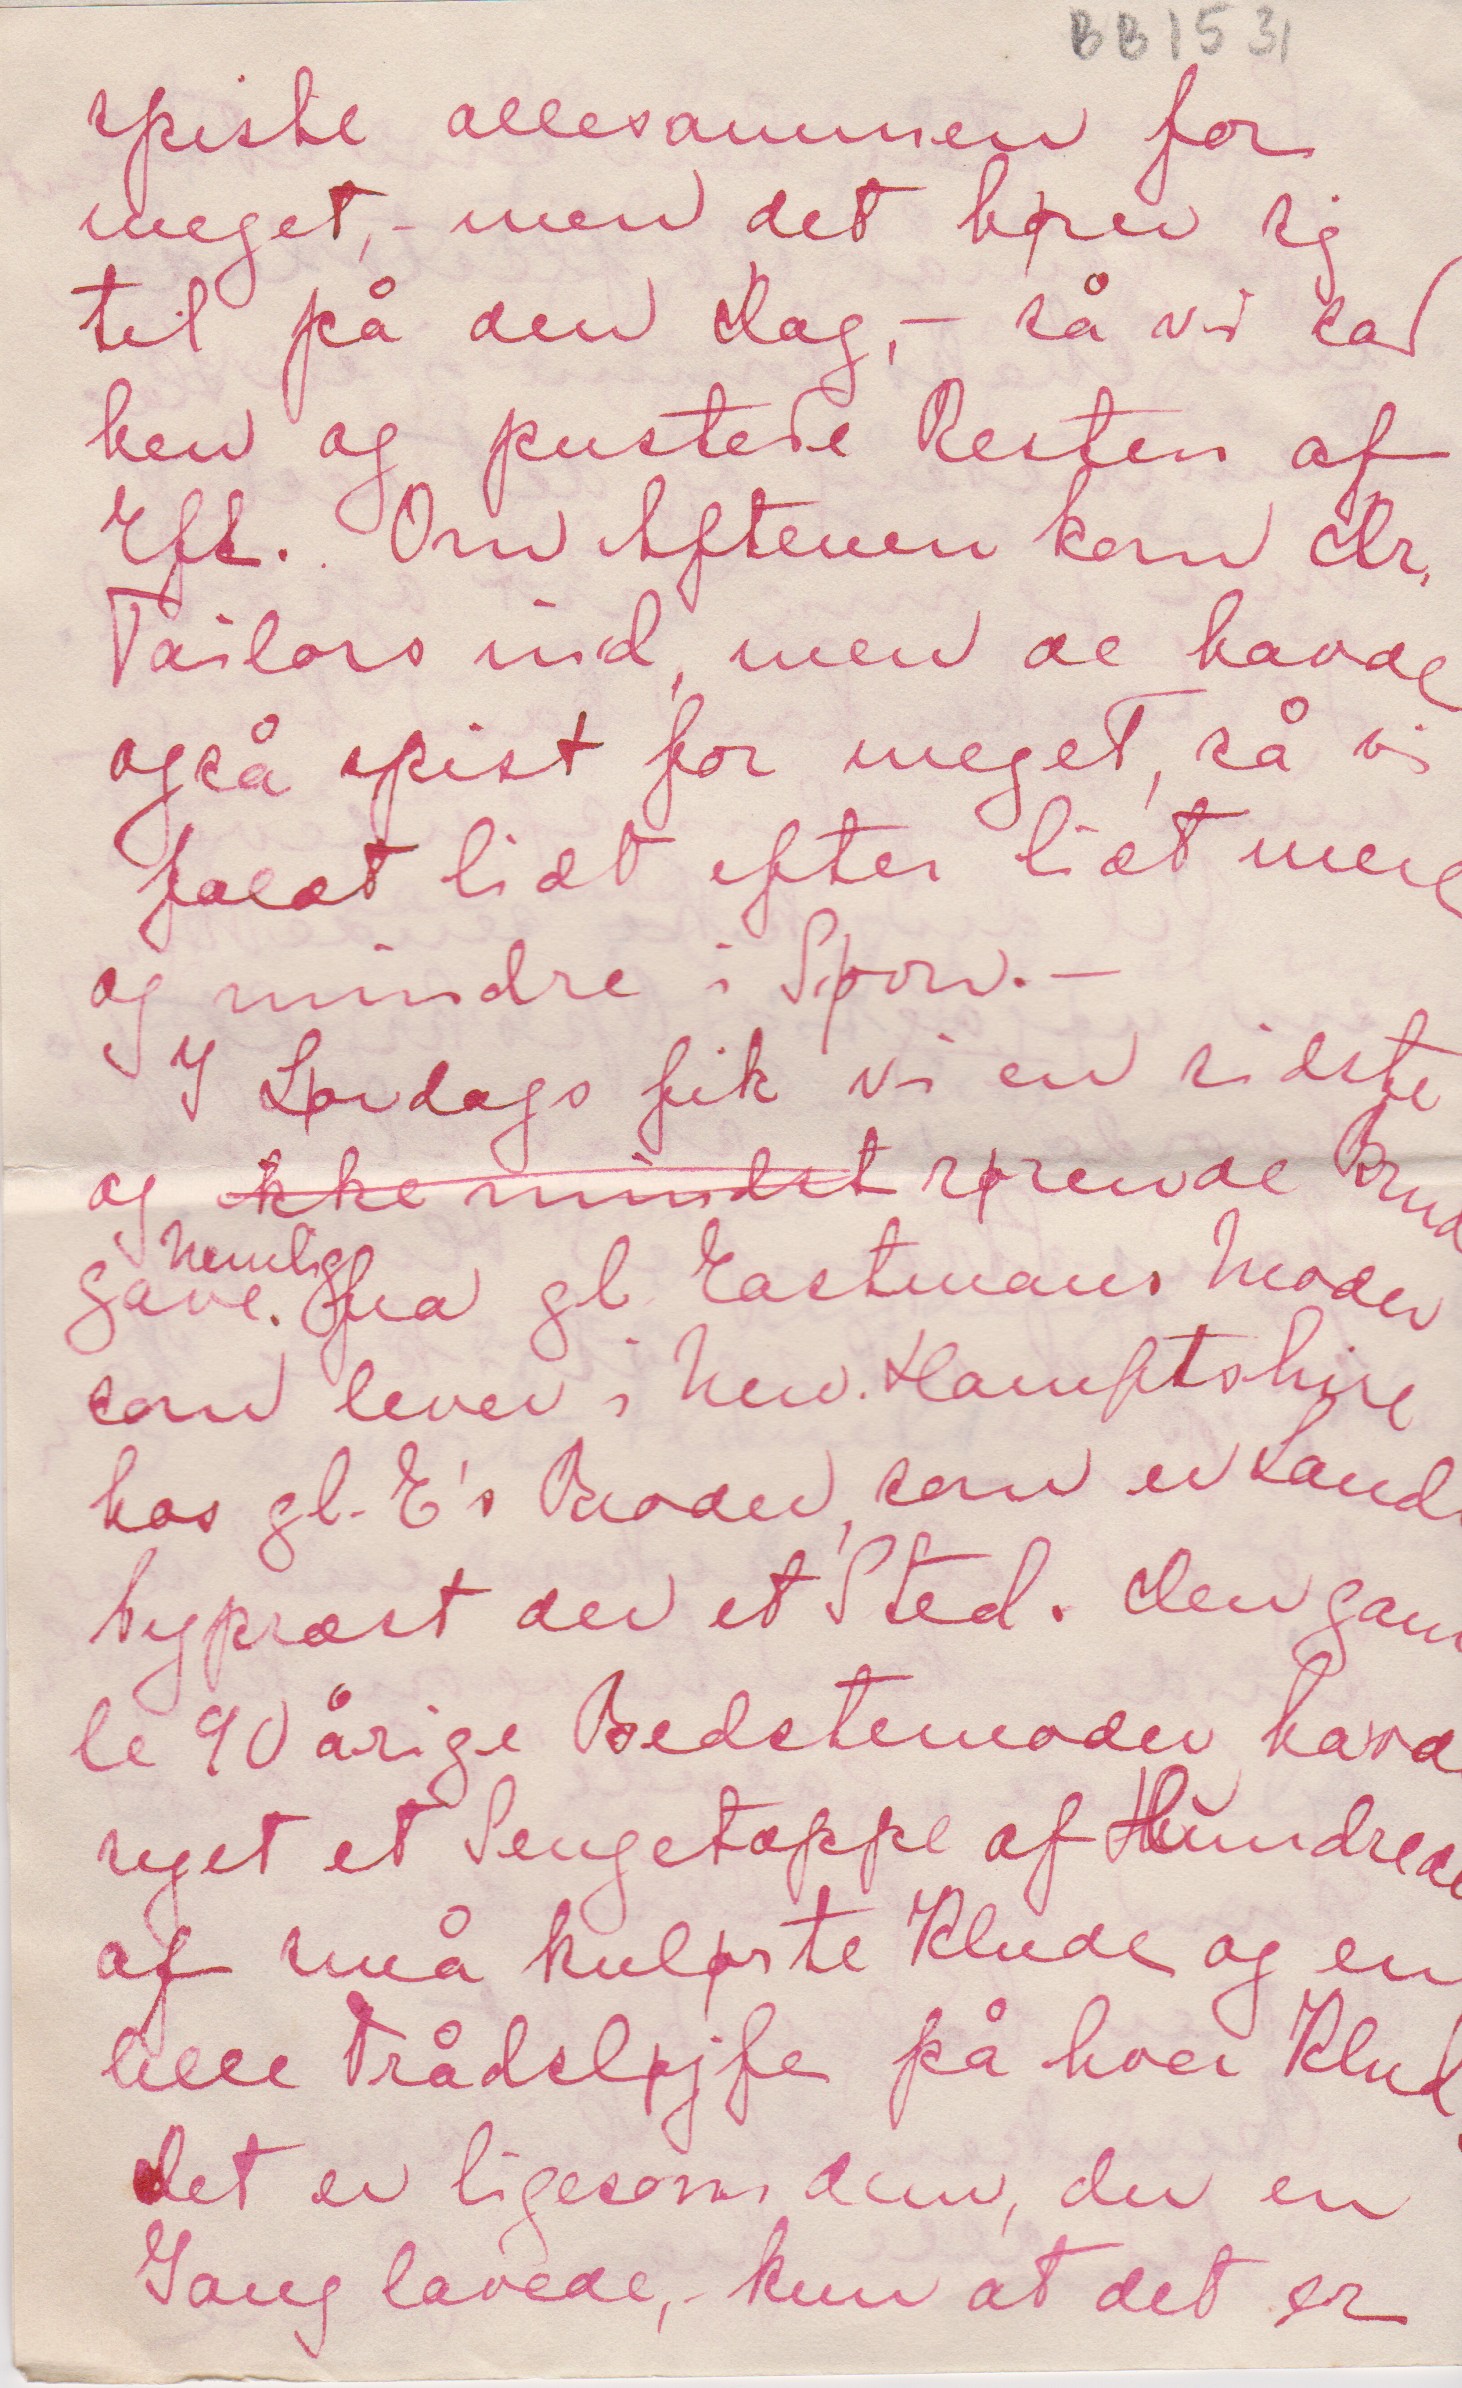 BB1531
spiste allesammen for
meget,- men det hører sig
til på den Dag,- så vi sad
hen og pustede Resten af
Eft. Om Aftenen kom Dr.
Tailors ind, men de havde
også spist for meget, så vi
faldt lidt efter lidt mere
og mindre i Søvn.-
I Lørdags fik vi en sidste
og ikke mindst rørende Brud
gave. Nemlig fra gl. Eastmans Moder
som lever i New. Hamptshire
hos gl. E's Broder, som er Lands
bypræst der et Sted. Den gam
le 90 årige Bedstemoder havde
syet et Sengetæppe af Hundrede
af små kulørte Klude og en
lille Trådsløjfe på hver Klud.
Det er ligesom dem, du en
Gang lavede,- kun at det er